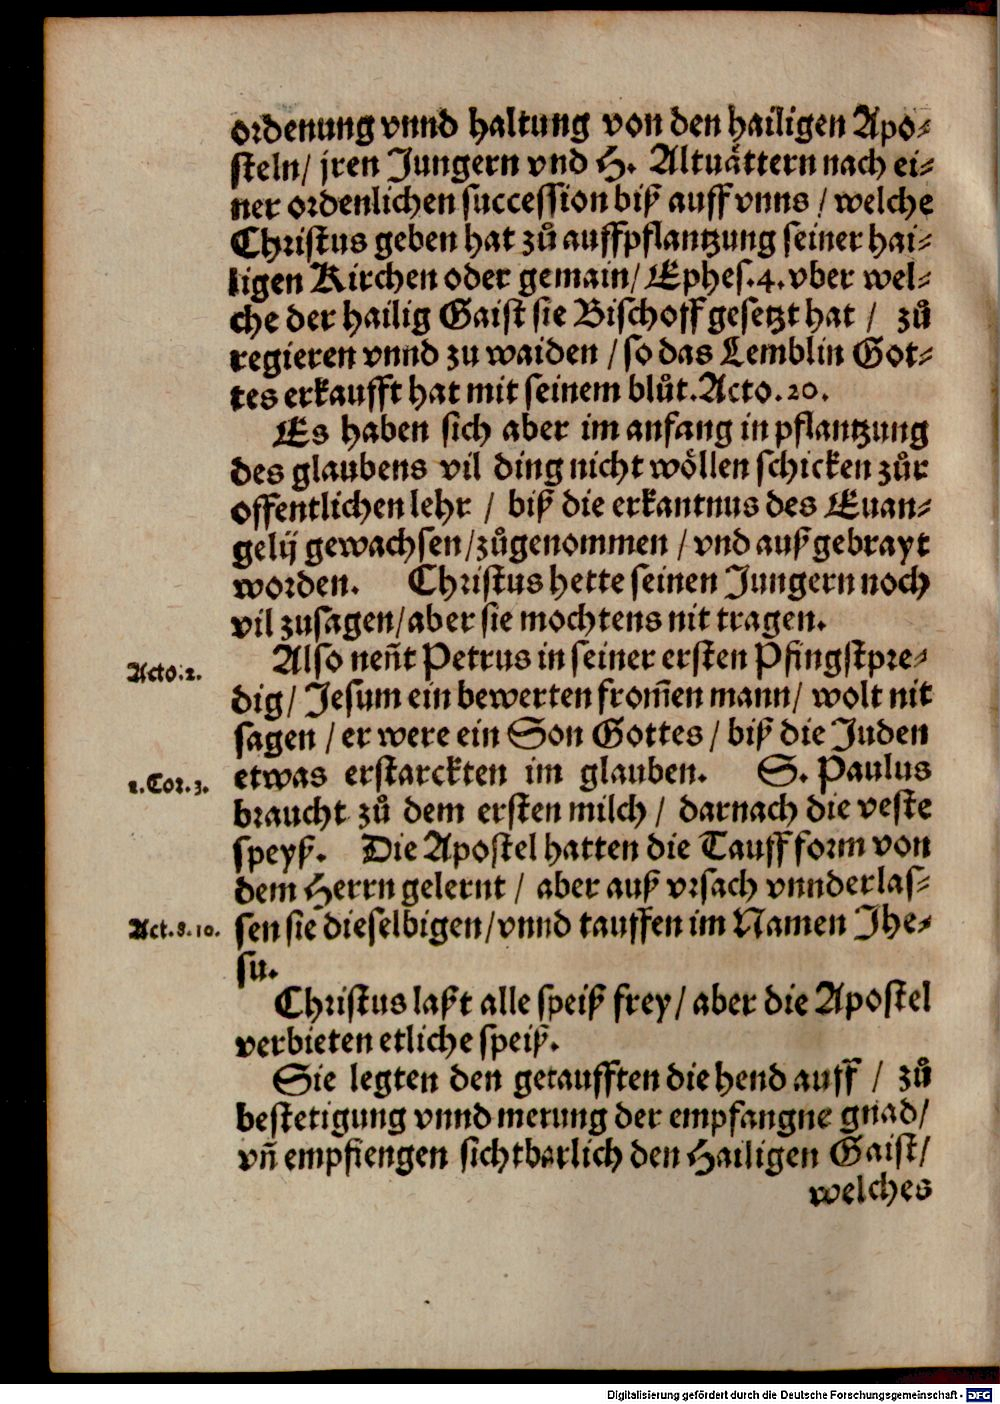 ordenung vnnd haltung von den hailigen Apo⸗
steln/ jren Jungern vnd H. Altuättern nach ei⸗
ner ordenlichen succession biß auff vnns / welche
Christus geben hat zů auffpflantzung seiner hai⸗
ligen Kirchen oder gemain/ Ephes.4. vber wel⸗
che der hailig Gaist sie Bischoff gesetzt hat / zů
regieren vnnd zu waiden / so das Lemblin Got⸗
tes erkaufft hat mit seinem blůt. Acto. 20.
Es haben sich aber im anfang in pflantzung
des glaubens vil ding nicht wöllen schicken zůr
offentlichen lehr / biß die erkantnus des Euan⸗
gelij gewachsen/zůgenommen / vnd außgebrayt
worden. Christus hette seinen Jungern noch
vil zusagen/aber sie mochtens nit tragen.
Acto.2. Also neñt Petrus in seiner ersten Pfingstpre⸗
dig/ Jesum ein bewerten from̃en mann/ wolt nit
sagen / er were ein Son Gottes / biß die Juden
1.Cor.3. etwas erstarckten im glauben. S. Paulus
braucht zů dem ersten milch / darnach die veste
speyß. Die Apostel hatten die Tauff form von
dem Herrn gelernt / aber auß vrsach vnnderlas⸗
Act.8.10. sen sie dieselbigen/vnnd tauffen im Namen Jhe⸗
su.
Christus laßt alle speiß frey/ aber die Apostel
verbieten etliche speiß.
Sie legten den getaufften die hend auff / zů
bestetigung vnnd merung der empfangne gnad/
vñ empfiengen sichtbarlich den Hailigen Gaist/
welches
Digitalisierung gefördert durch die Deutsche Forschungsgemeinschaft - DFG